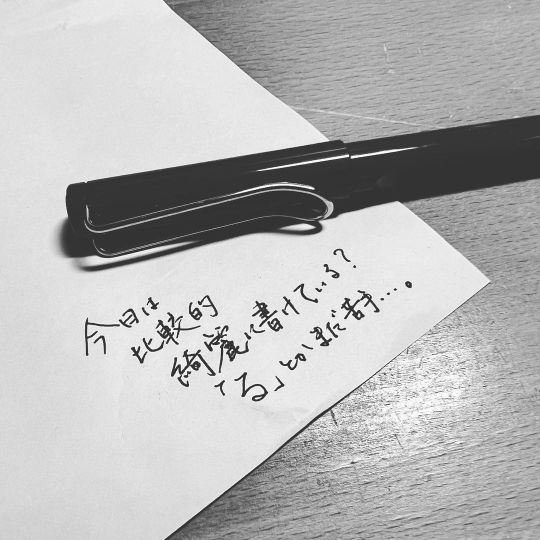 今日は
比較的
綺麗に書けている?
「る」とかまだ苦手…。